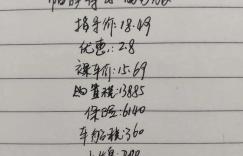 指导价:18.49
优惠:2.8
裸车价:15.69
购置税:13885
保险:6140
车船税:360